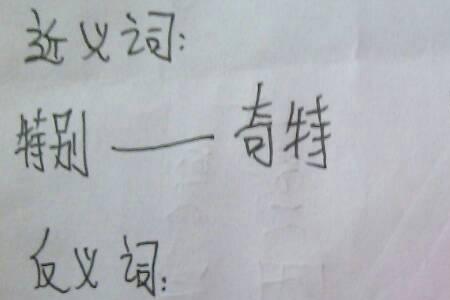 近义词:
特别——奇特
反义词: